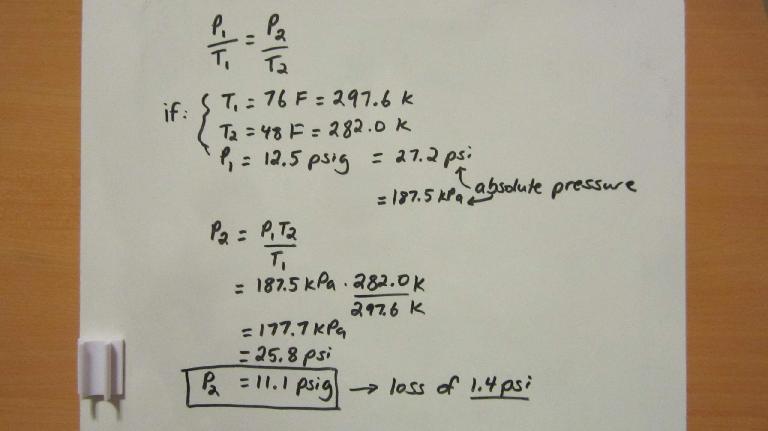 P₁/T₁ = P₂/T₂
if: { T₁ = 76 F = 297.6 K
T₂ = 48 F = 282.0 K
P₁ = 12.5 psig = 27.2 psi
absolute pressure
= 187.5 kPa
P₂ = P₁T₂/T₁
= 187.5 kPa · 282.0 K/297.6 K
= 177.7 kPa
= 25.8 psi
P₂ = 11.1 psig → loss of 1.4 psi